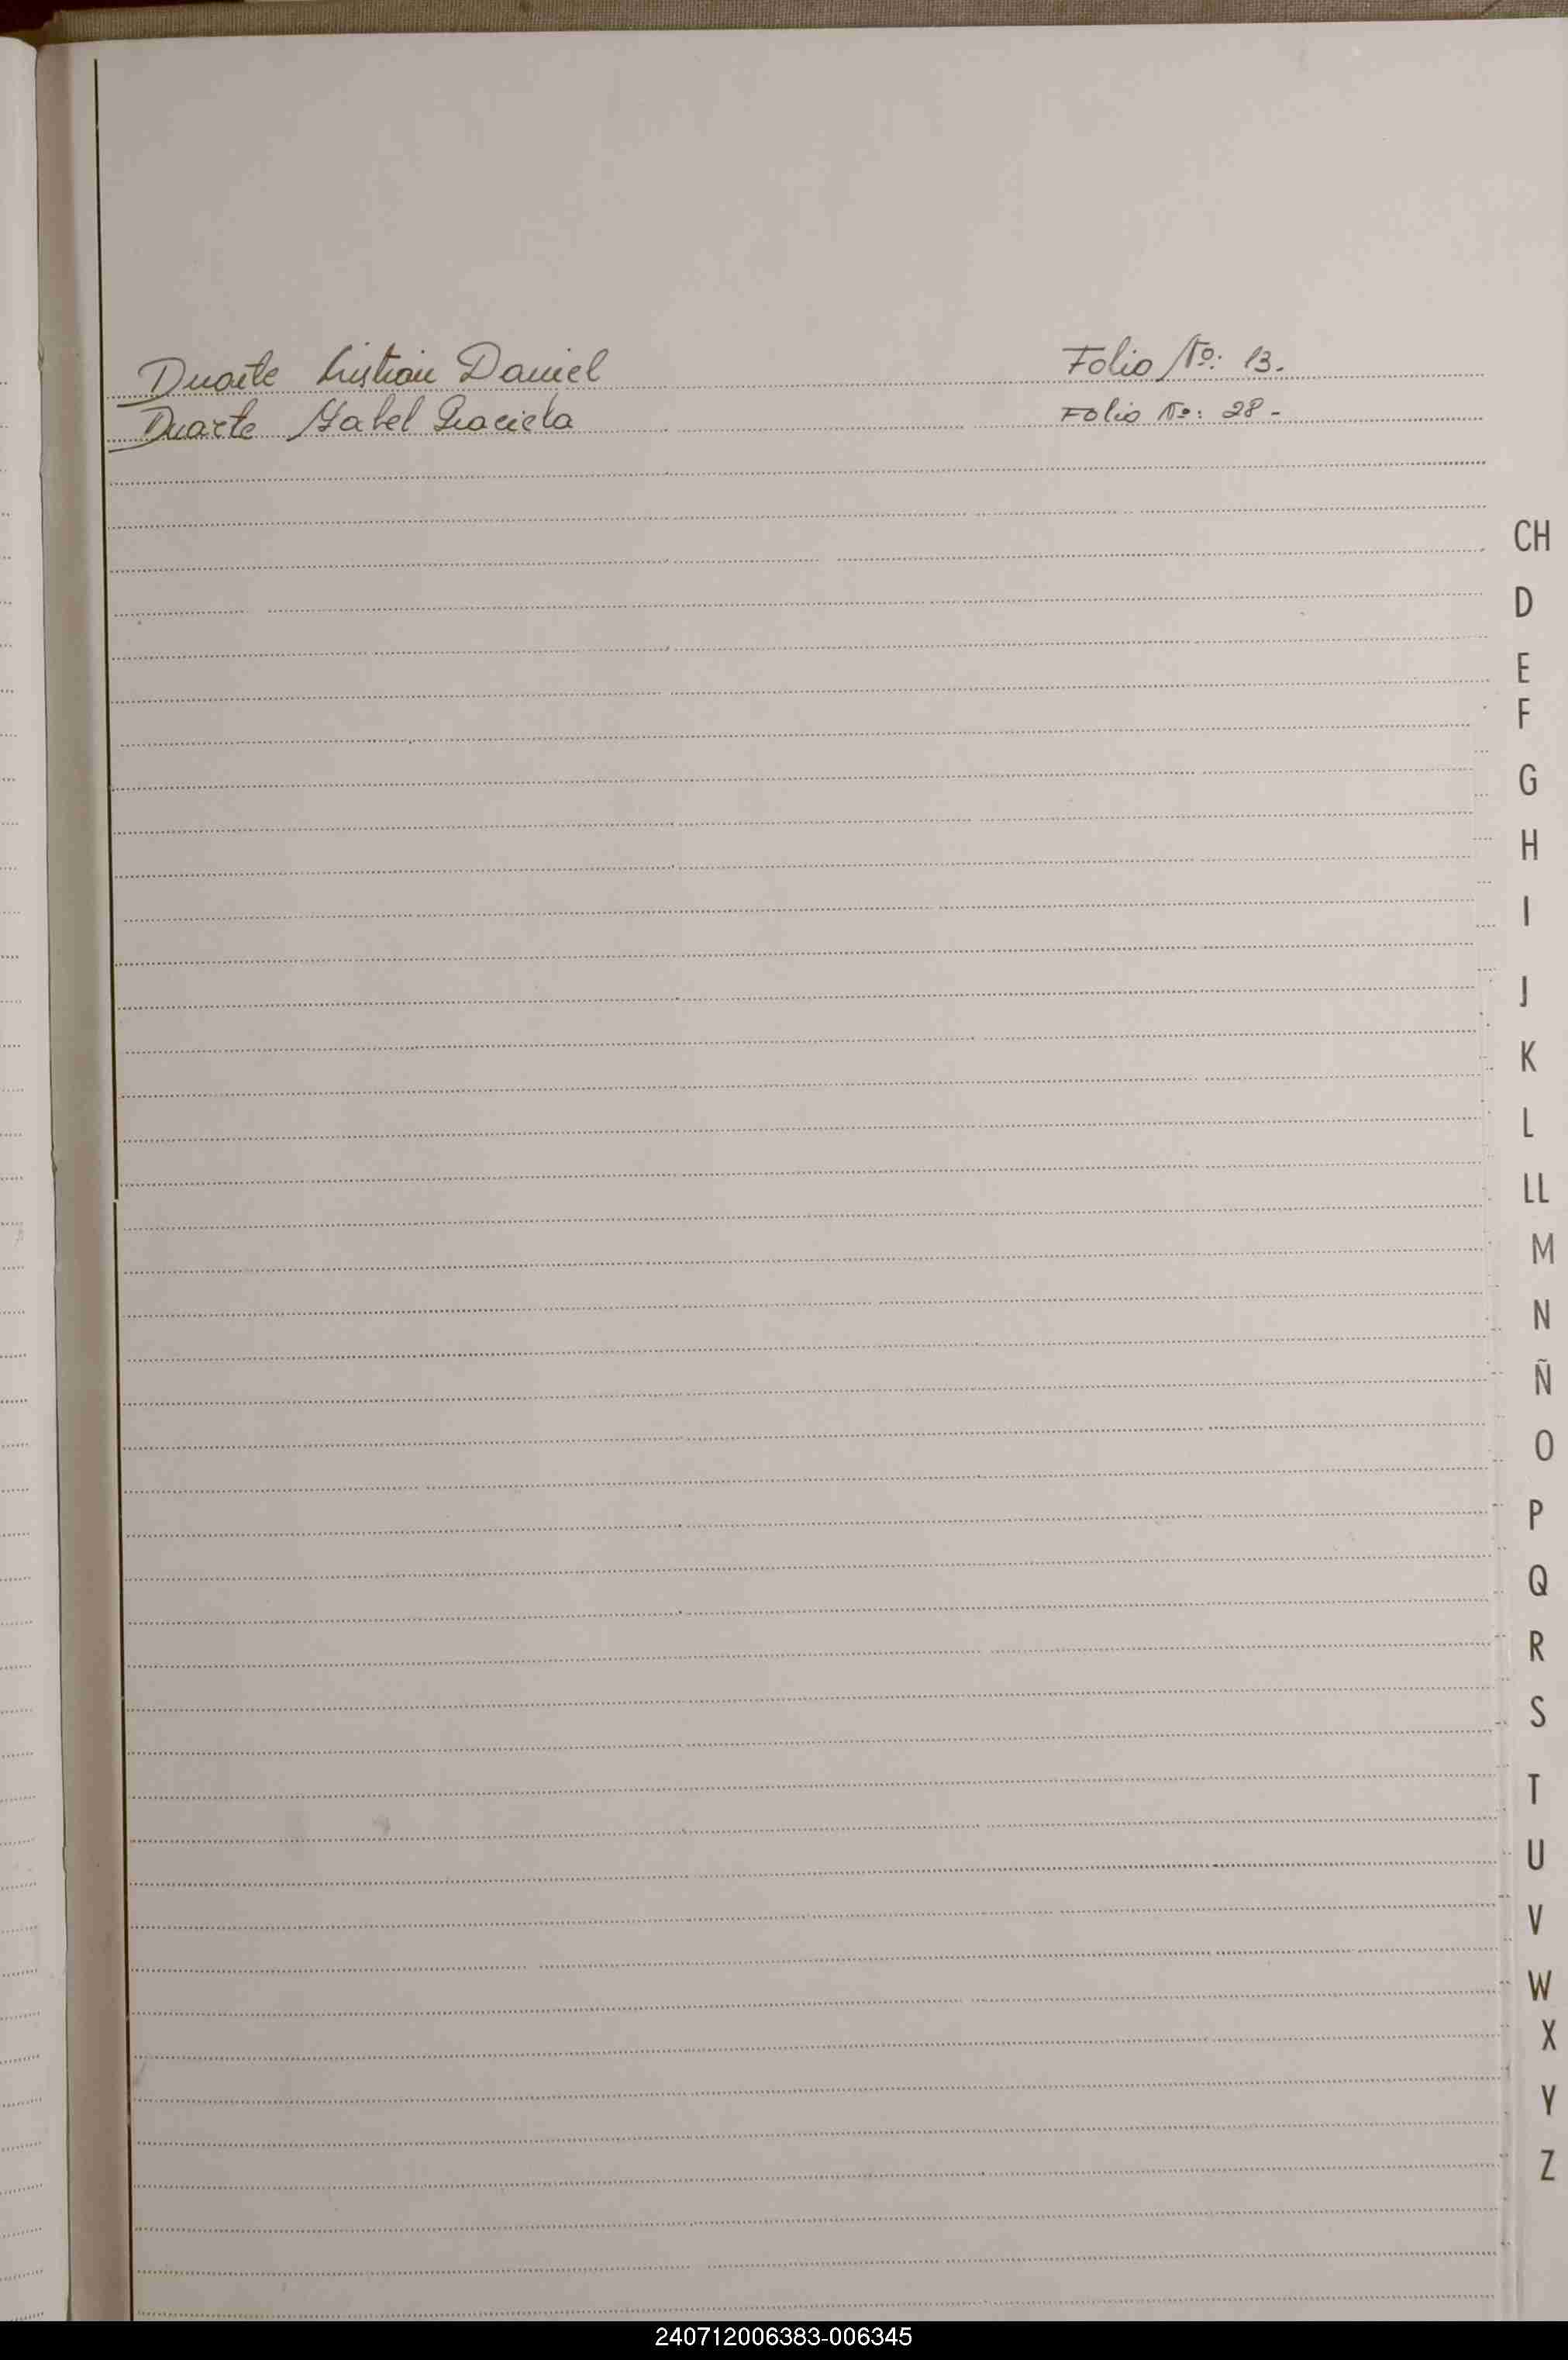 Duarte Cristian Daniel Folio Nº: 13.
Duarte Isabel Graciela Folio Nº: 28-
CH
D
E
F
G
H
I
J
K
L
LL
M
N
Ñ
O
P
Q
R
S
T
U
V
W
X
Y
Z
240712006383-006345